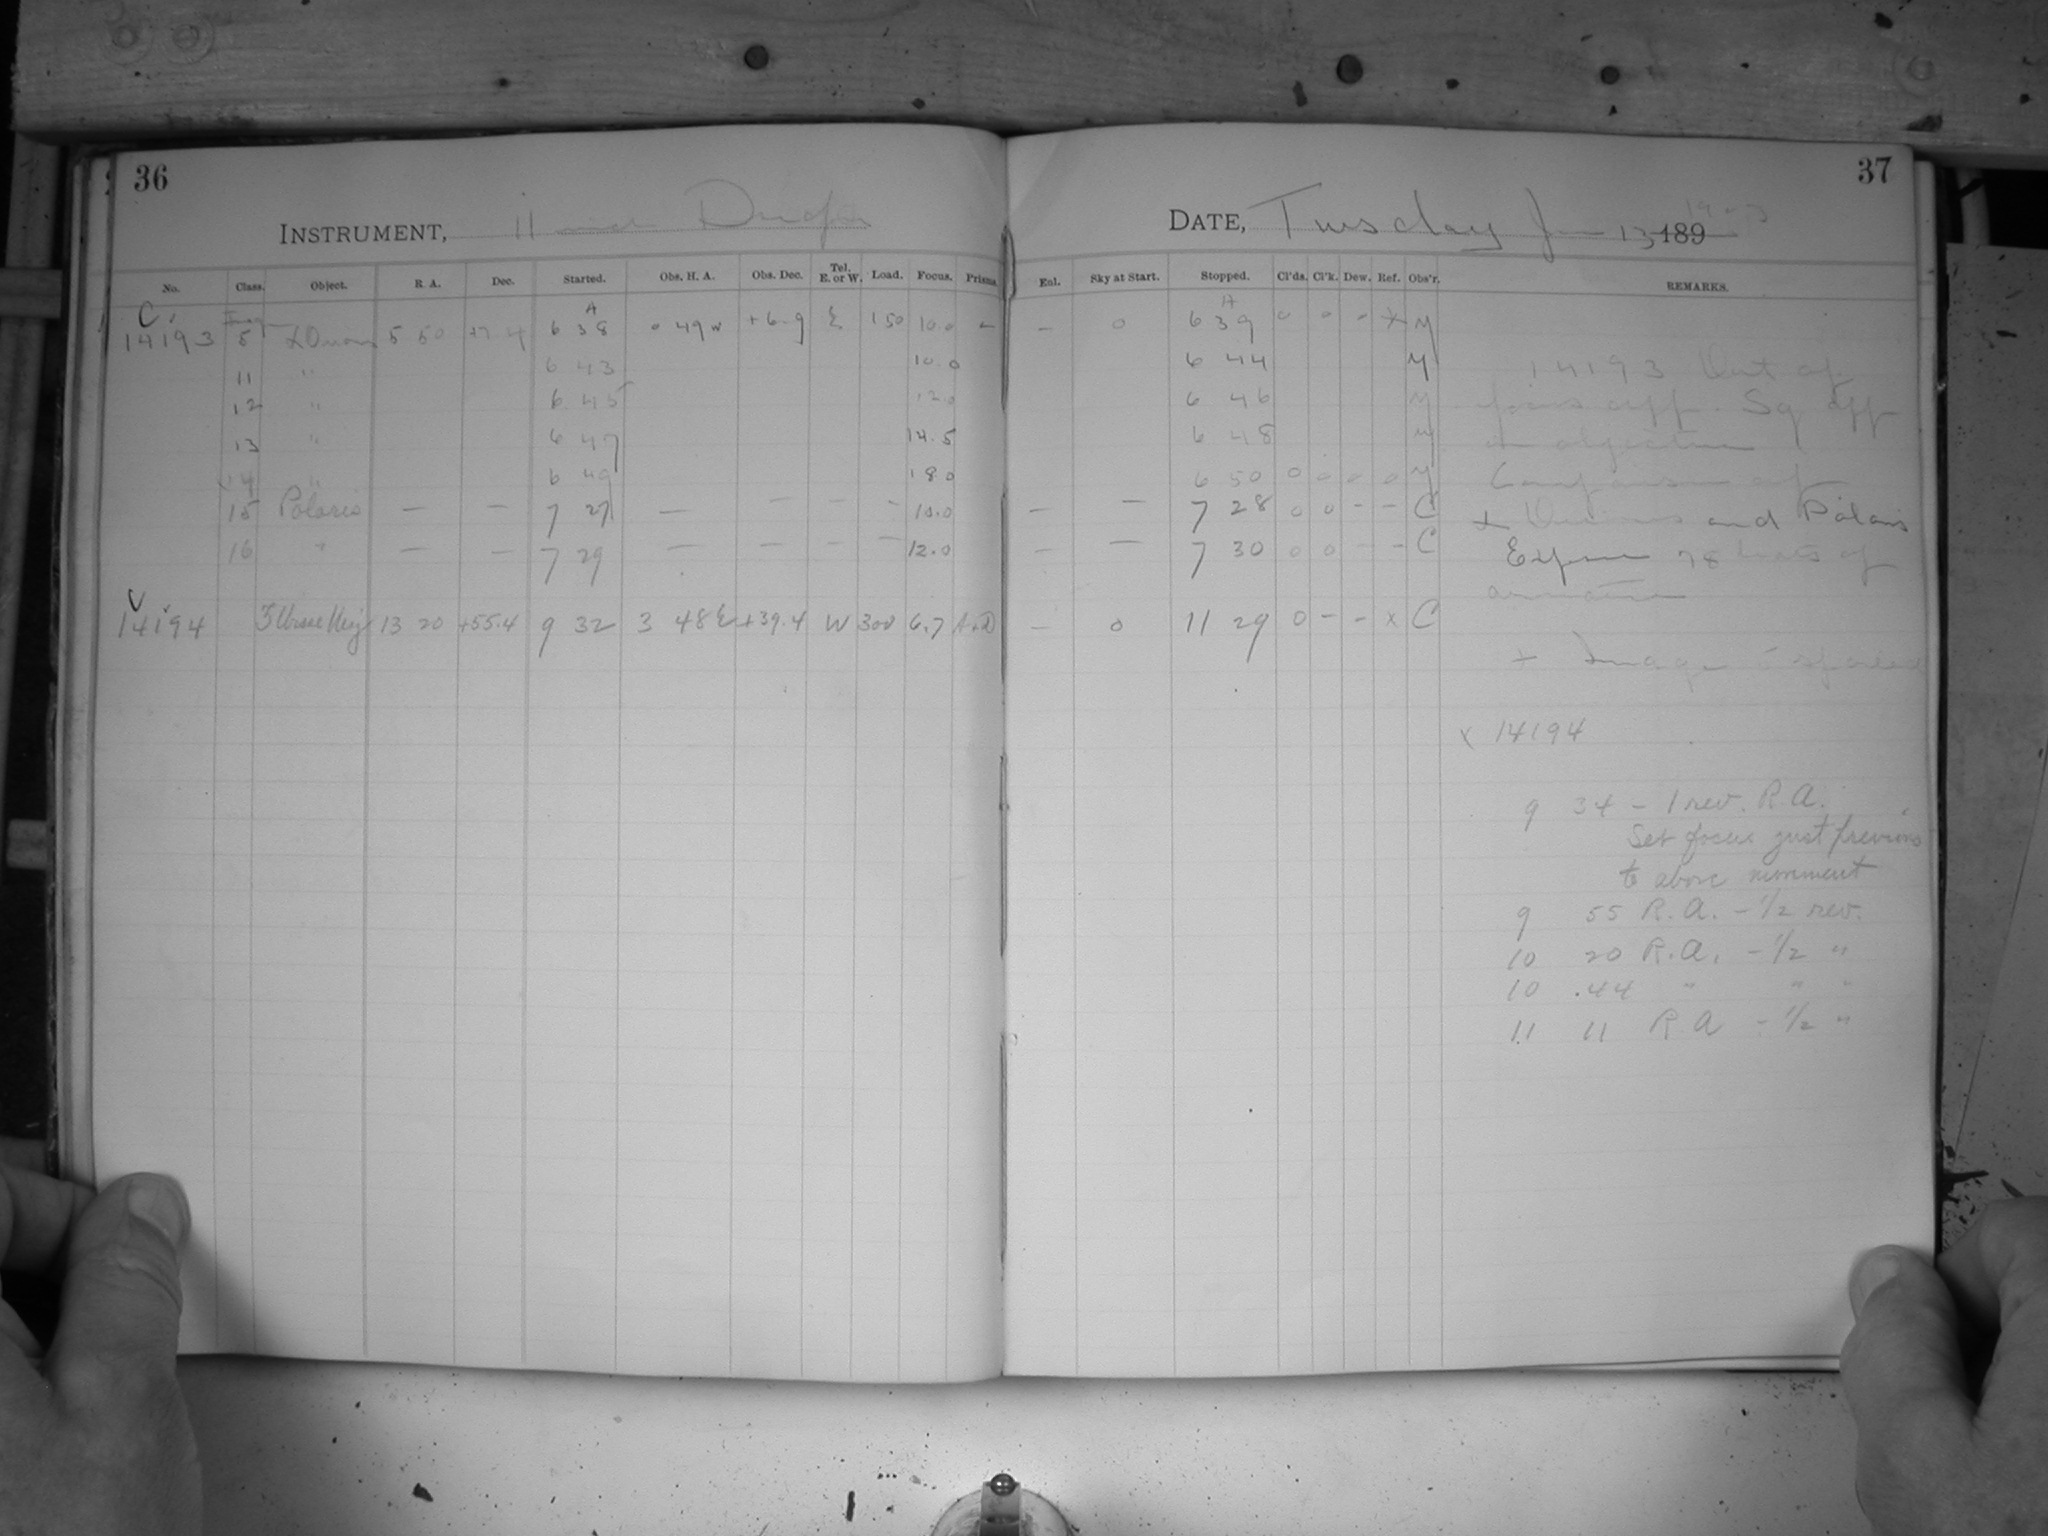 36
INSTRUMENT, 11 inch Draper
No. Class. Object. R. A. Dec. Started. Obs. H. A. Obs. Dec. Tel. E. or W. Load. Focus. Prisms.
C.
14193 5 α Orionis 5 50 +7.4 A 6 38 0 49 W +6.9 E 150 10.0 –
11 " 6 43 10.0
12 " 6 45 12.0
13 " 6 47 14.5
14 " 6 49 18.0
15 Polaris — — 7 27 — — – – 10.0
16 " — — 7 29 — — – — 12.0
C
14194 ζ Ursae Maj 13 20 +55.4 9 32 3 48 E +39.4 W 300 6.7
37
DATE, Tuesday Jan 13, 189 1903
Enl. Sky at Start. Stopped. Cl'ds. Cl'k. Dew. Ref. Obs'r. REMARKS.
– 0 A 6 39 0 0 – × M
6 44 M
6 46 M
6 48 M
6 50 0 M
— — 7 28 0 0 – – C
— — 7 30 0 0 – – C
– 0 11 29 0 – – × C
14193 Out of
focus Sq
Comparison of
α Orionis and Polaris
Expose 78 beats of
armature
+ Image 5 spoiled
x 14194
9 34 – 1 rev. R.A.
Set focus just previous
to above movement
9 55 R.A. – 1/2 rev.
10 20 R.A. – 1/2 "
10 .44 " " "
11 11 R A – 1/2 "